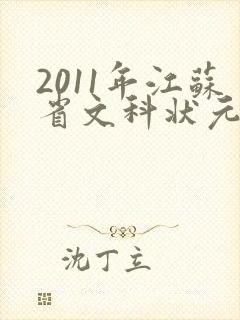 2011年江蘇
省文科状元
沈丁立